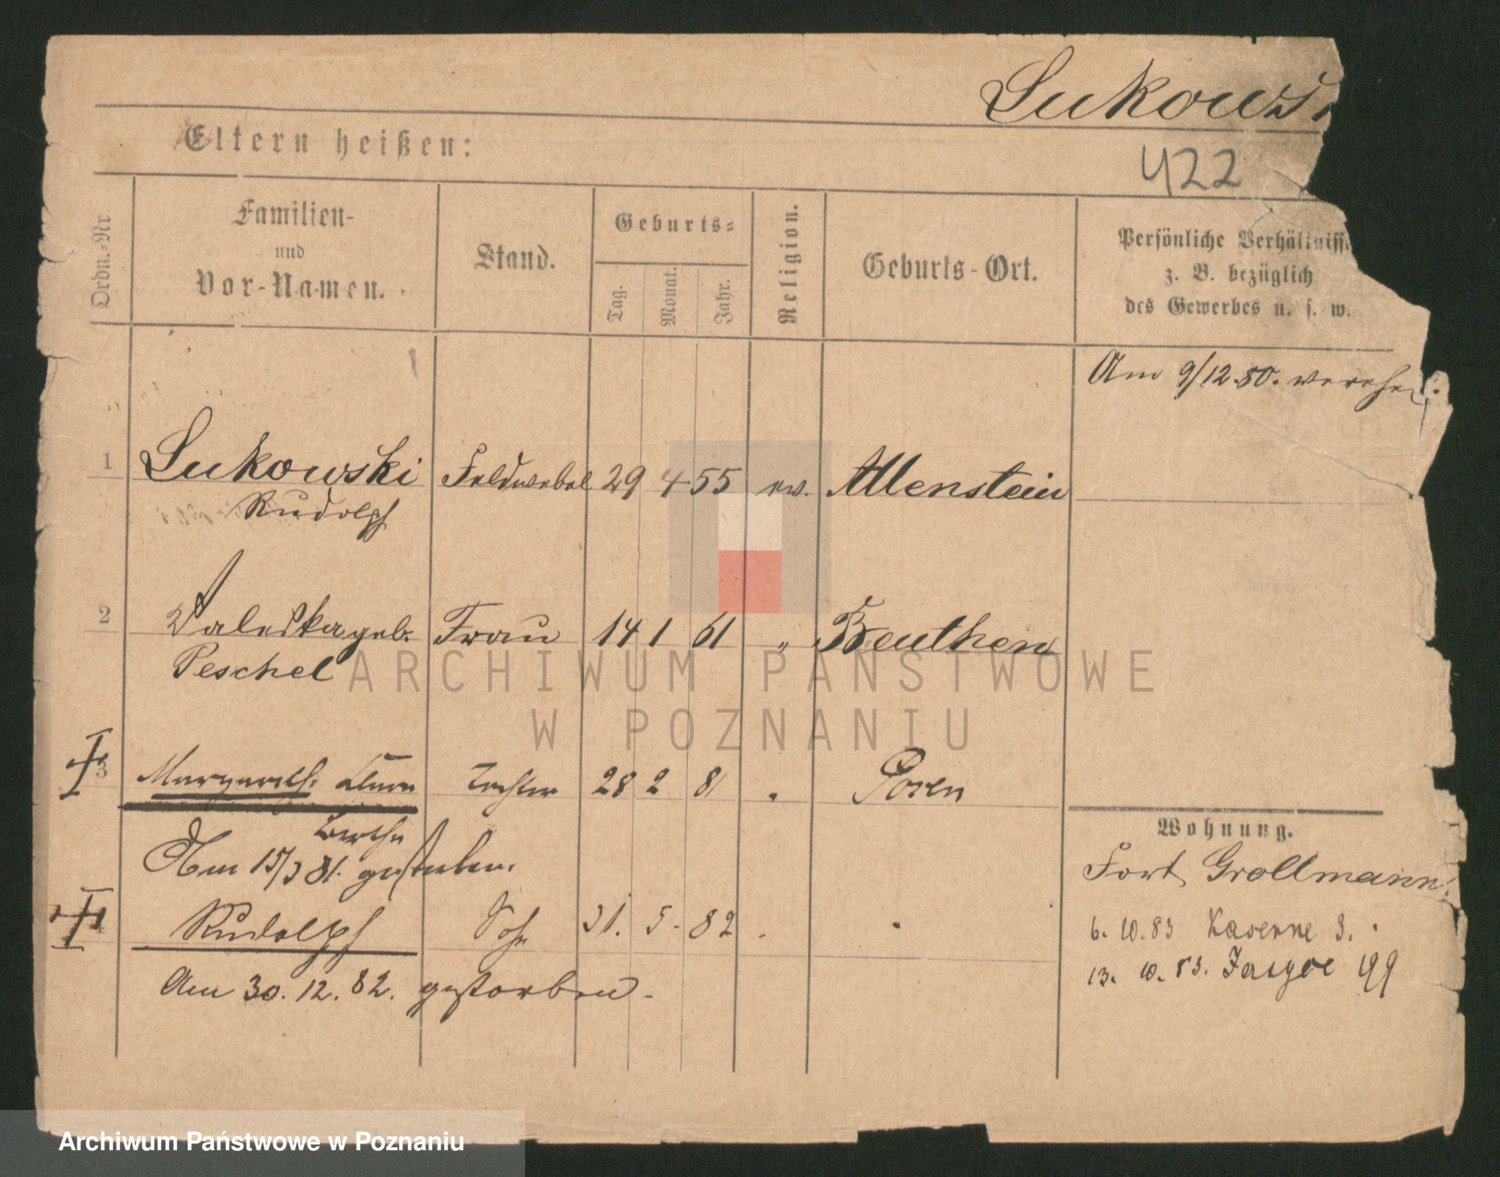 Lukows
422
Eltern heißen:
Ordn.-Nr
Familien-
und
Vor-Namen.
Stand.
Geburts-
Tag.
Monat.
Jahr.
Religion.
Geburts-Ort.
Persönliche Verhältnisse
z. B. bezüglich
des Gewerbes u. s. w.
Am 9/12.80. verehe.
1 Lukowski Feldwebel 29 4 55 ev. Allenstein
Rudolph
2 Valeska geb. Frau 14 1 61 " Beuthen
Peschel
3 Margareth. Clara Tochter 28 2 81 " Posen
Bertha
Am 15/3 81. gestorben.
Rudolph Sohn 31. 5. 82
Am 30. 12. 82. gestorben.
Wohnung.
Fort Grollmann
6. 10. 83 Kaserne 3.
13. 10. 83. 199
ARCHIWUM PAŃSTWOWE
W POZNANIU
Archiwum Państwowe w Poznaniu